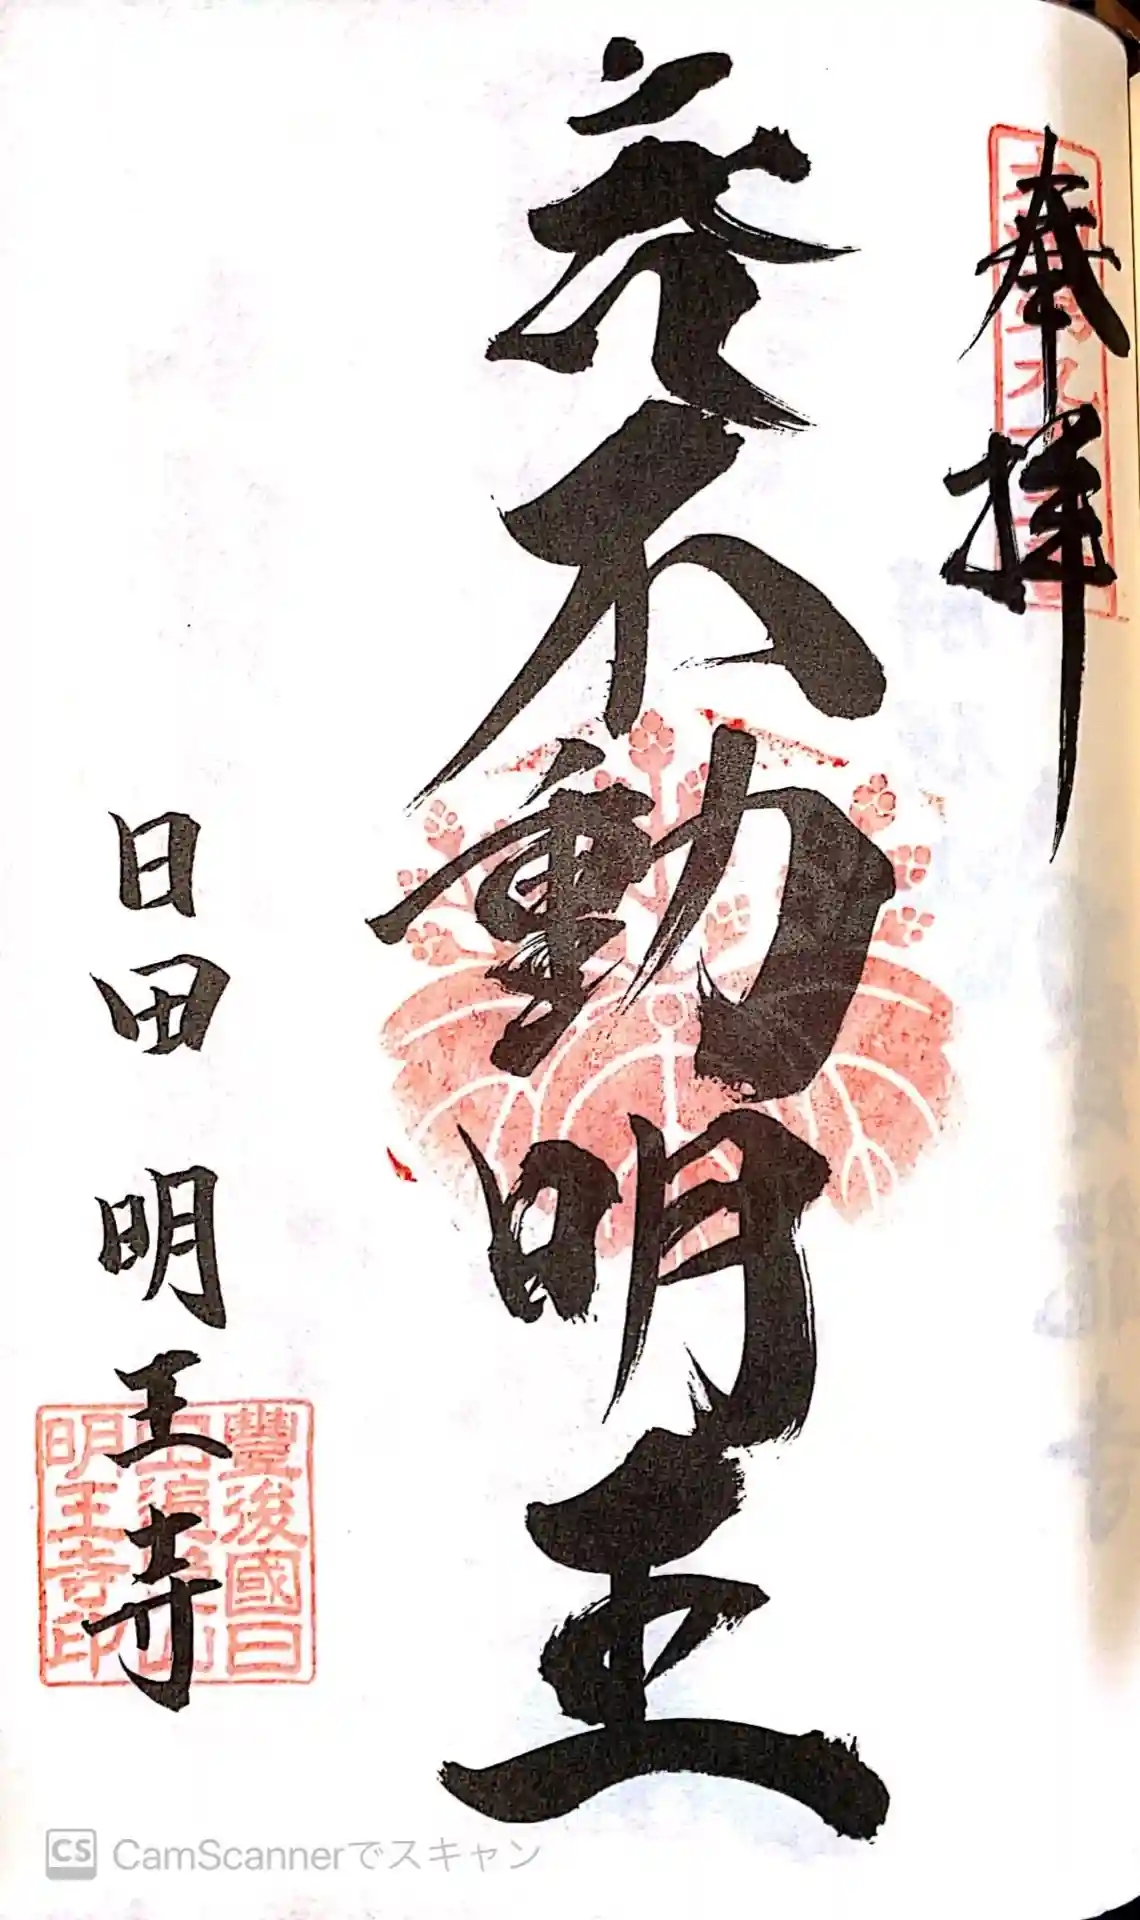 奉拝
不動明王
日田 明王寺
豐後國日
明王寺印
CS CamScannerでスキャン